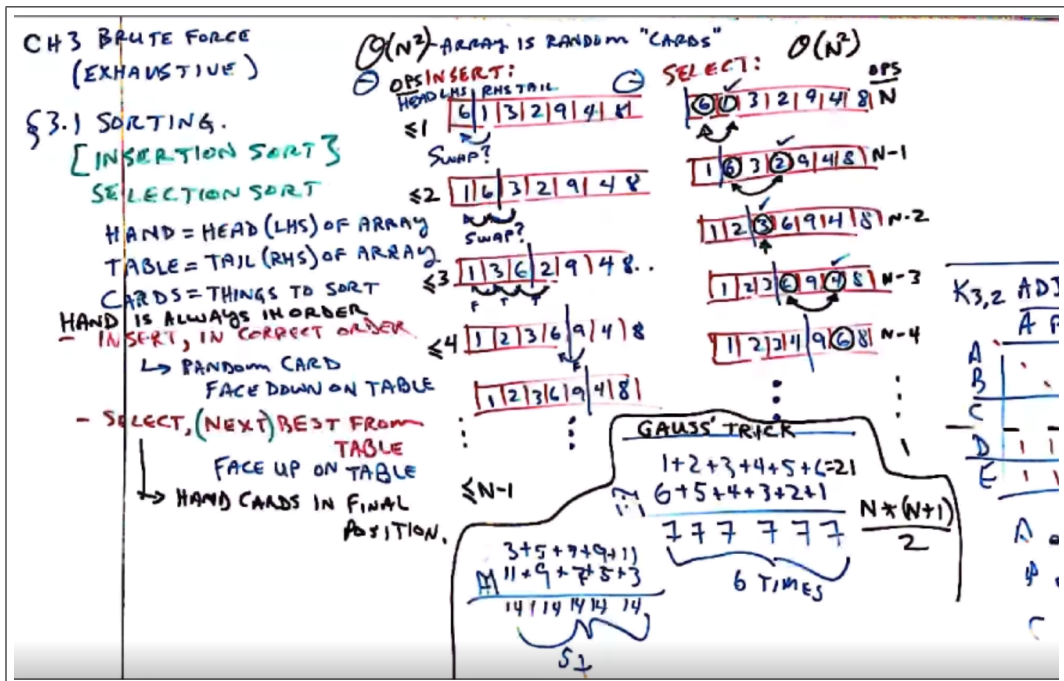 CH3 BRUTE FORCE
(EXHAUSTIVE)
§3.1 SORTING.
[INSERTION SORT}
SELECTION SORT
HAND = HEAD (LHS) OF ARRAY
TABLE = TAIL (RHS) OF ARRAY
CARDS = THINGS TO SORT
HAND IS ALWAYS IN ORDER
- INSERT, IN CORRECT ORDER
↳ RANDOM CARD
FACE DOWN ON TABLE
- SELECT, (NEXT) BEST FROM
TABLE
FACE UP ON TABLE
↳ HAND CARDS IN FINAL
POSITION.
O(N²)-ARRAY IS RANDOM "CARDS"
OPS INSERT:
HEAD LHS | RHS TAIL
≤1 6|1|3|2|9|4|8|
SWAP?
≤2 |1|6|3|2|9|4 8
SWAP?
≤3 1|3|6|2|9|4 8..
F T T
≤4 1|2|3|6|9|4|8
F
|1|2|3|6|9|4|8|
≤N-1
SELECT: O(N²)
OPS
6 1 3|2|9|4|8| N
1 6 3 2 9|4|8 N-1
1|2 3 6|9|4|8| N-2
1|2|3 6 9 4 8| N-3
1|2|3|4|9 6 8| N-4
1
GAUSS' TRICK
1+2+3+4+5+6=21
6+5+4+3+2+1
7 7 7 7 7 7
6 TIMES
N*(N+1)
2
3+5+7+9+11
11+9+7+5+3
14 14 14 14 14
K3,2 ADJ
A
A
B
C
D 1 1
E 1 1
A